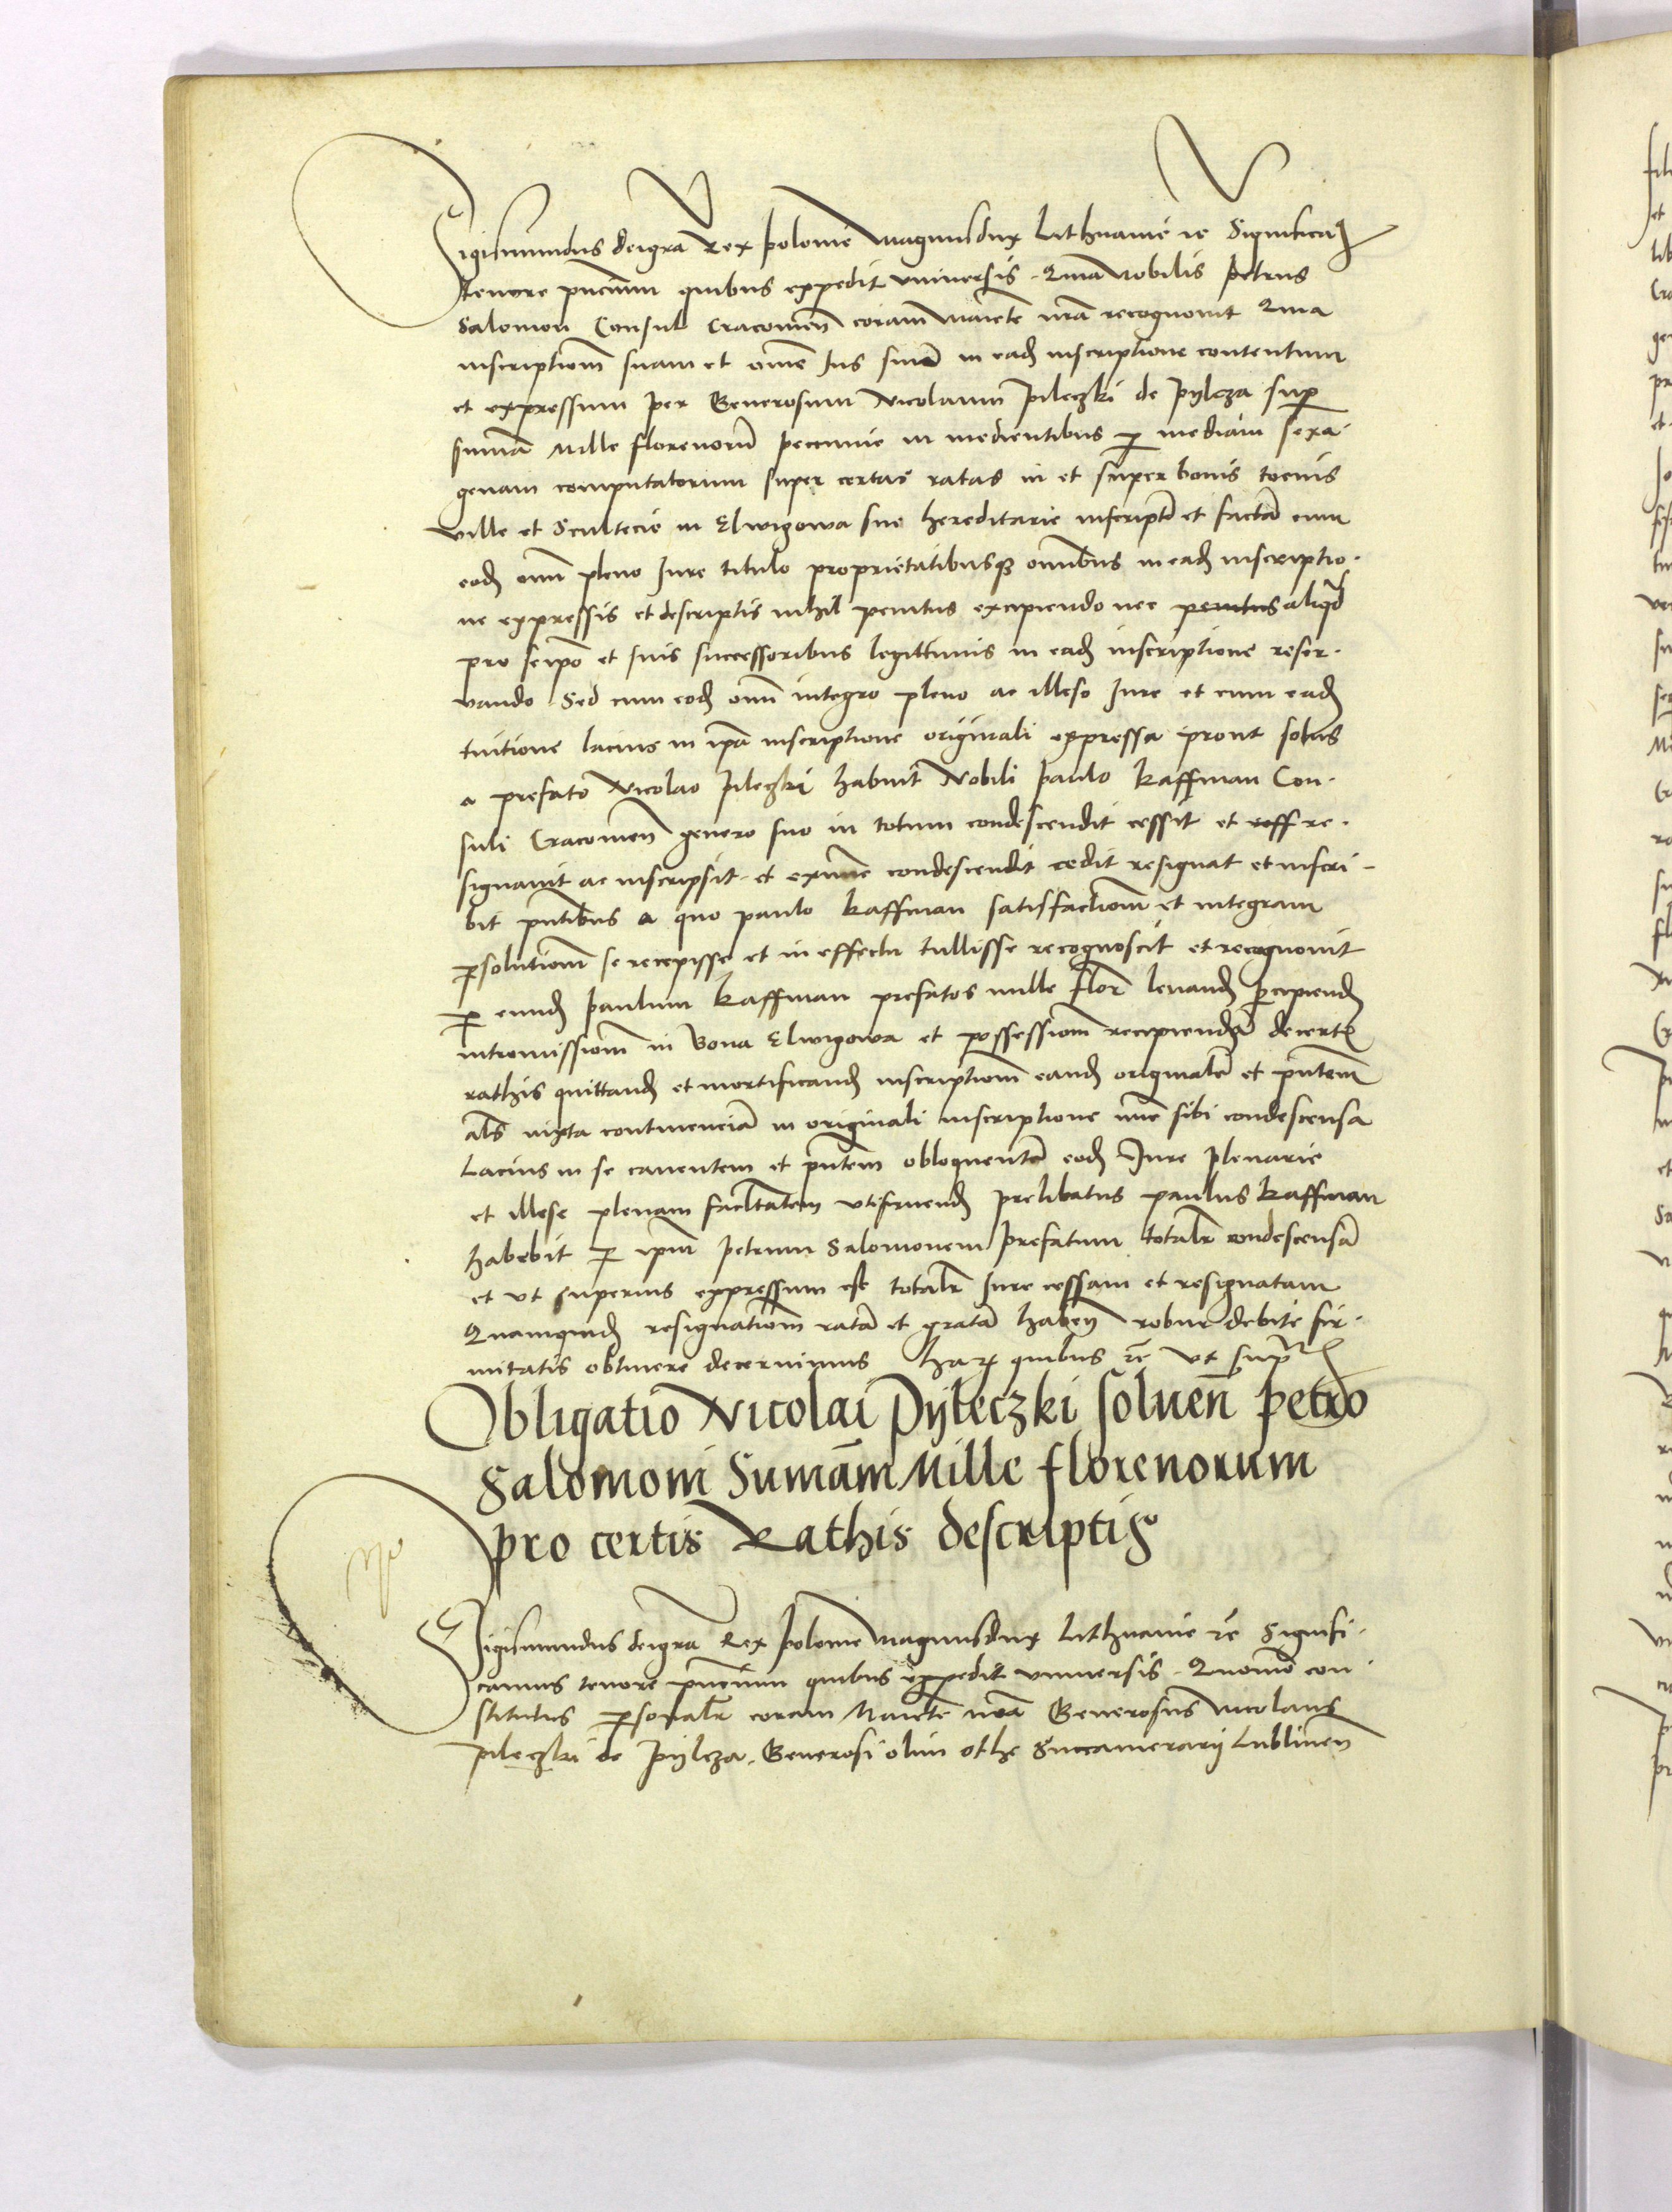 Sigismundus deigra Rex polonie Magnusdux Lithuanie rc Significam9
tenore pñcium quibus expedit vniuersis. Quia Nobilis petrus
Salomon Consul Cracouień coram Maiestate nrã recognouit Quia
inscriptioem̃ suam et om̃e Ius suũ in ead inscriptione contentum
et expressum per Generosum Nicolaum pileczki de pylcza sup
sum̃a Mille florenorũ pecunie in medientibus p mediam sexa-
genam computatorum super certas ratas in et super bonis toeius
ville et Scultecie in Elwigowa sue hereditarie inscriptã et factã cum
eod om̃i pleno Iure titulo proprietatibusqz omnibus in ead inscriptio-
ne expressis et descriptis nihil penitus excipiendo nec penitus aliqd
pro seip̃o et suis successoribus legittimis in ead inscriptione reser-
vando Sed cum eod om̃i integro pleno ac illeso Iure et cum ead
tuitione lacius in ip̃a inscriptione originali expressa prout solus
a prefato Nicolao pileczki habuit Nobili paulo Kaffman Con-
suli Cracouień genero suo in totum condescendit cessit et reff re-
signauit ac inscripsit et exnunc condescendit cedit resignat et inscri-
bit pñtibus a quo paulo Kaffman satisfactioem̃ et integram
psolutioem̃ se recepisse et in effectu tullisse recognoscit et recognouit
p eund paulum Kaffman prefatos mille flor̃ leuand pcipiend
intromissioem̃ in bona Elwigowa et possessioem̃ recipiendã de certis
rathis quittand et mortificand inscriptioem̃ eand originalẽ et pñtem
als iuxta continenciã in originali inscriptione nũc sibi condescensa
Lacius in se cauentem et pñtem obloquentẽ eod Iure plenarie
et illese plenam facltatem vtifruend prelibatus paulus Kaffman
habebit p ip̃um petrum Salomonem prefatum totalr̃ condescensã
et vt superius expressum est totalr̃ Iure cessam et resignatam
Quamquid resignatioem̃ ratã et gratã habeñ robur debite fir-
mitatis obtinere decernimus Har quibus rc̃ vt supra
Obligatio Nicolai Pyleczki soluen̄ petro
Salomoni Sumam̄ Mille florenorum
pro certis Rathis descriptis
Sigismundus deigra Rex polonie Magnusdux Lithuanie rc̃ Signifi-
camus tenore pñcium quibus expedit vniuersis. Quomõ con-
stitutus psonalr̃ coram Maiestate nrã Generosus Nicolaus
pileczki de pylcza. Generosi olim othe Succamerarij Lublineñ